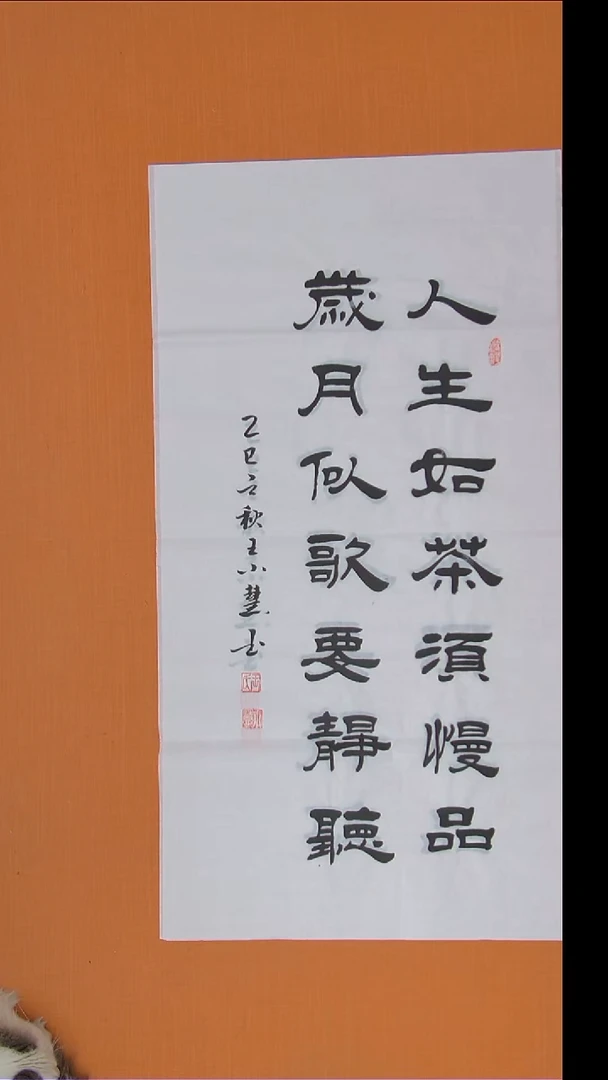 人生如茶須慢品
歲月似歌要靜聽
乙巳立秋王小慧書